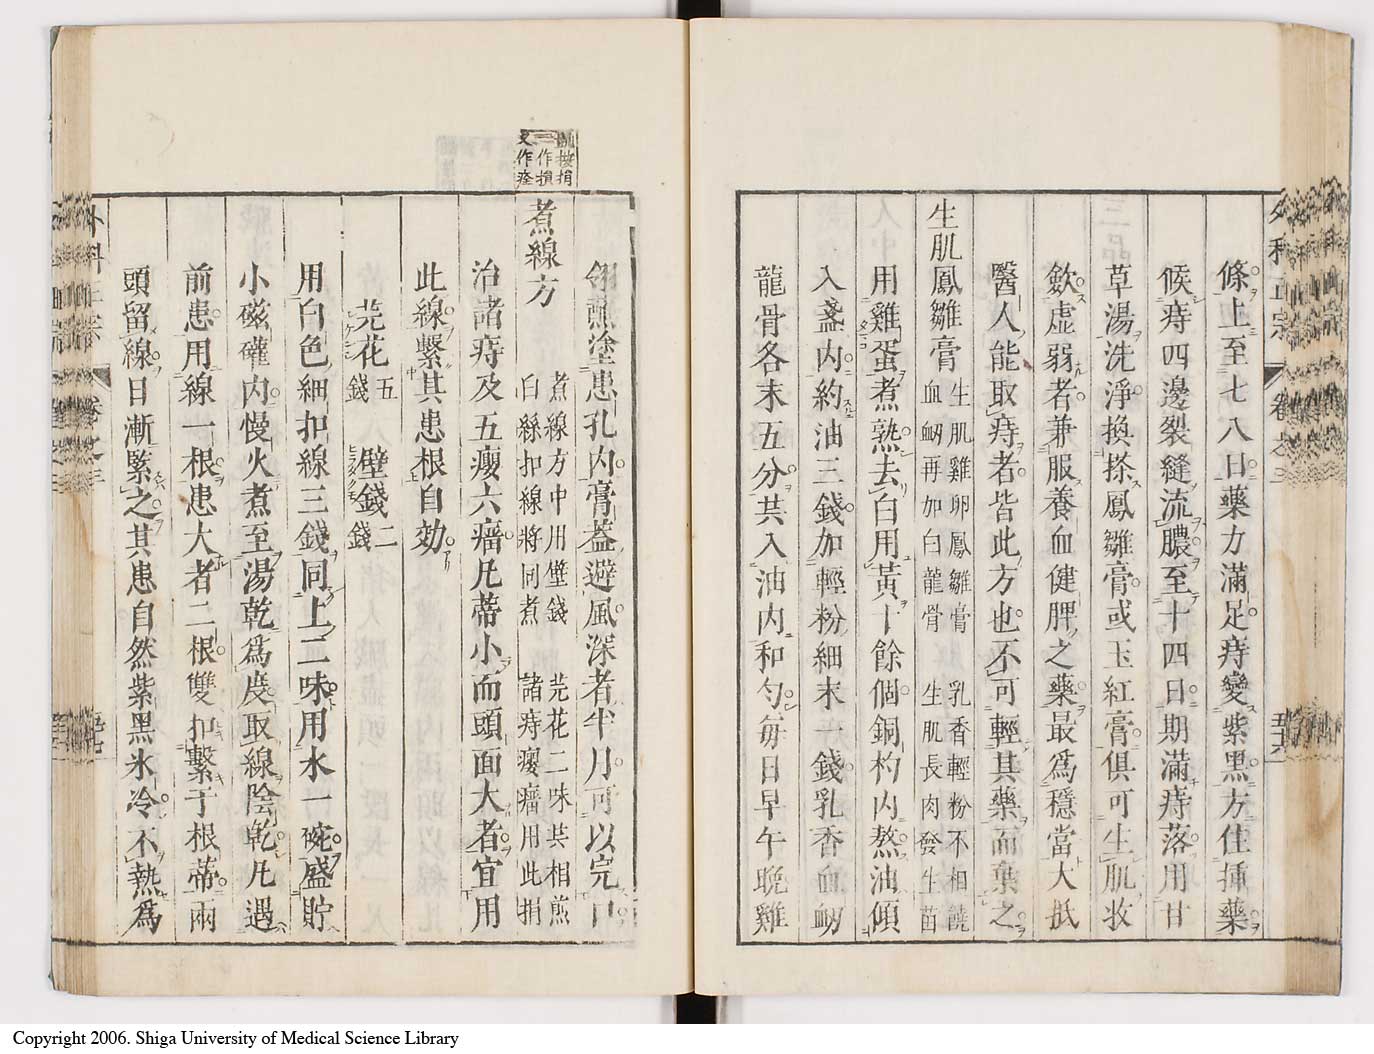 條上至七八日藥力滿足痔變紫黑方住揷藥
候痔四邊裂縫流膿至十四日期滿痔落用甘
草湯洗淨換搽鳳雛膏或玉紅膏俱可生肌收
歛虛弱者兼服養血健脾之藥最爲穩當大抵
醫人能取痔者皆此方也不可輕其藥而棄之
生肌鳳雛膏
生肌雞卵鳳雛膏 乳香輕粉不相饒
血衂再加白龍骨 生肌長肉發生苗
用雞蛋煮熟去白用黃十餘個銅杓内熬油傾
入盞内約油三錢加輕粉細末一錢乳香血衂
龍骨各末五分共入油内和勻每日早午晚雞
翎蘸塗患孔内膏蓋避風深者半月可以完口
煮線方
煮線方中用壁錢 芫花二味共相煎
白絲扣線將同煮 諸痔癭瘤用此捐
治諸痔及五癭六瘤凡蒂小而頭面大者宜用
此線繫其患根自効
芫花五錢 壁錢二錢
用白色細扣線三錢同上二味用水一碗盛貯
小磁確内慢火煮至湯乾爲度取線陰乾凡遇
前患用線一根患大者二根雙扣繫于根蒂兩
頭留線日漸緊之其患自然紫黑氷冷不熱爲
外科正宗 卷之三
Copyright 2006. Shiga University of Medical Science Library